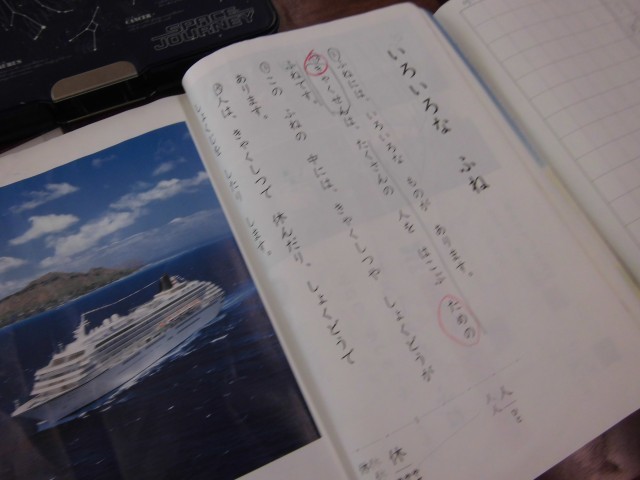 いろいろな ふね
ふねには、いろいろな ものが あります。
きゃくせんは、たくさんの 人を はこぶ ための
ふねです。
この ふねの 中には、きゃくしつや しょくどうが
あります。
人は、きゃくしつで 休んだり、しょくどうで
しょくじを したり します。
休